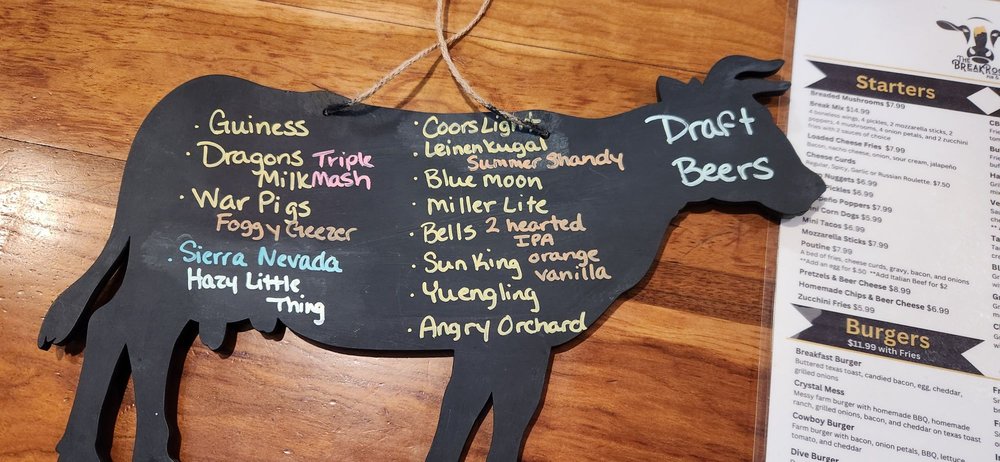 Draft
Beers
· Guiness
· Dragons Triple
Milk Mash
· War Pigs
Foggy Geezer
· Sierra Nevada
Hazy Little
Thing
· Coors Light
· Leinenkugal
Summer Shandy
· Blue moon
· Miller Lite
· Bells 2 hearted
IPA
· Sun King orange
vanilla
· Yuengling
· Angry Orchard
THE
BREAKROO
PUB &
Starters
Breaded Mushrooms $7.99
Break Mix $14.99
4 boneless wings, 4 pickles, 2 mozzarella sticks, 2
poppers, 4 mushrooms, 4 onion petals, and 2 zucchini
fries with 2 sauces of choice
Loaded Cheese Fries $7.99
Bacon, nacho cheese, onion, sour cream, jalapeño
Cheese Curds
Regular, Spicy, Garlic or Russian Roulette. $7.50
Nuggets $6.99
Pickles $6.99
Jalapeño Poppers $7.99
Mini Corn Dogs $5.99
Mini Tacos $6.99
Mozzarella Sticks $7.99
Poutine $7.99
A bed of fries, cheese curds, gravy, bacon, and onions
**Add an egg for $.50 **Add Italian Beef for $2
Pretzels & Beer Cheese $8.99
Homemade Chips & Beer Cheese $6.99
Zucchini Fries $5.99
Burgers
$11.99 with Fries
Breakfast Burger
Buttered texas toast, candied bacon, egg, cheddar,
grilled onions
Crystal Mess
Messy farm burger with homemade BBQ, homemade
ranch, grilled onions, bacon, and cheddar on texas toast
Cowboy Burger
Farm burger with bacon, onion petals, BBQ, lettuce
tomato, and cheddar
Dive Burger